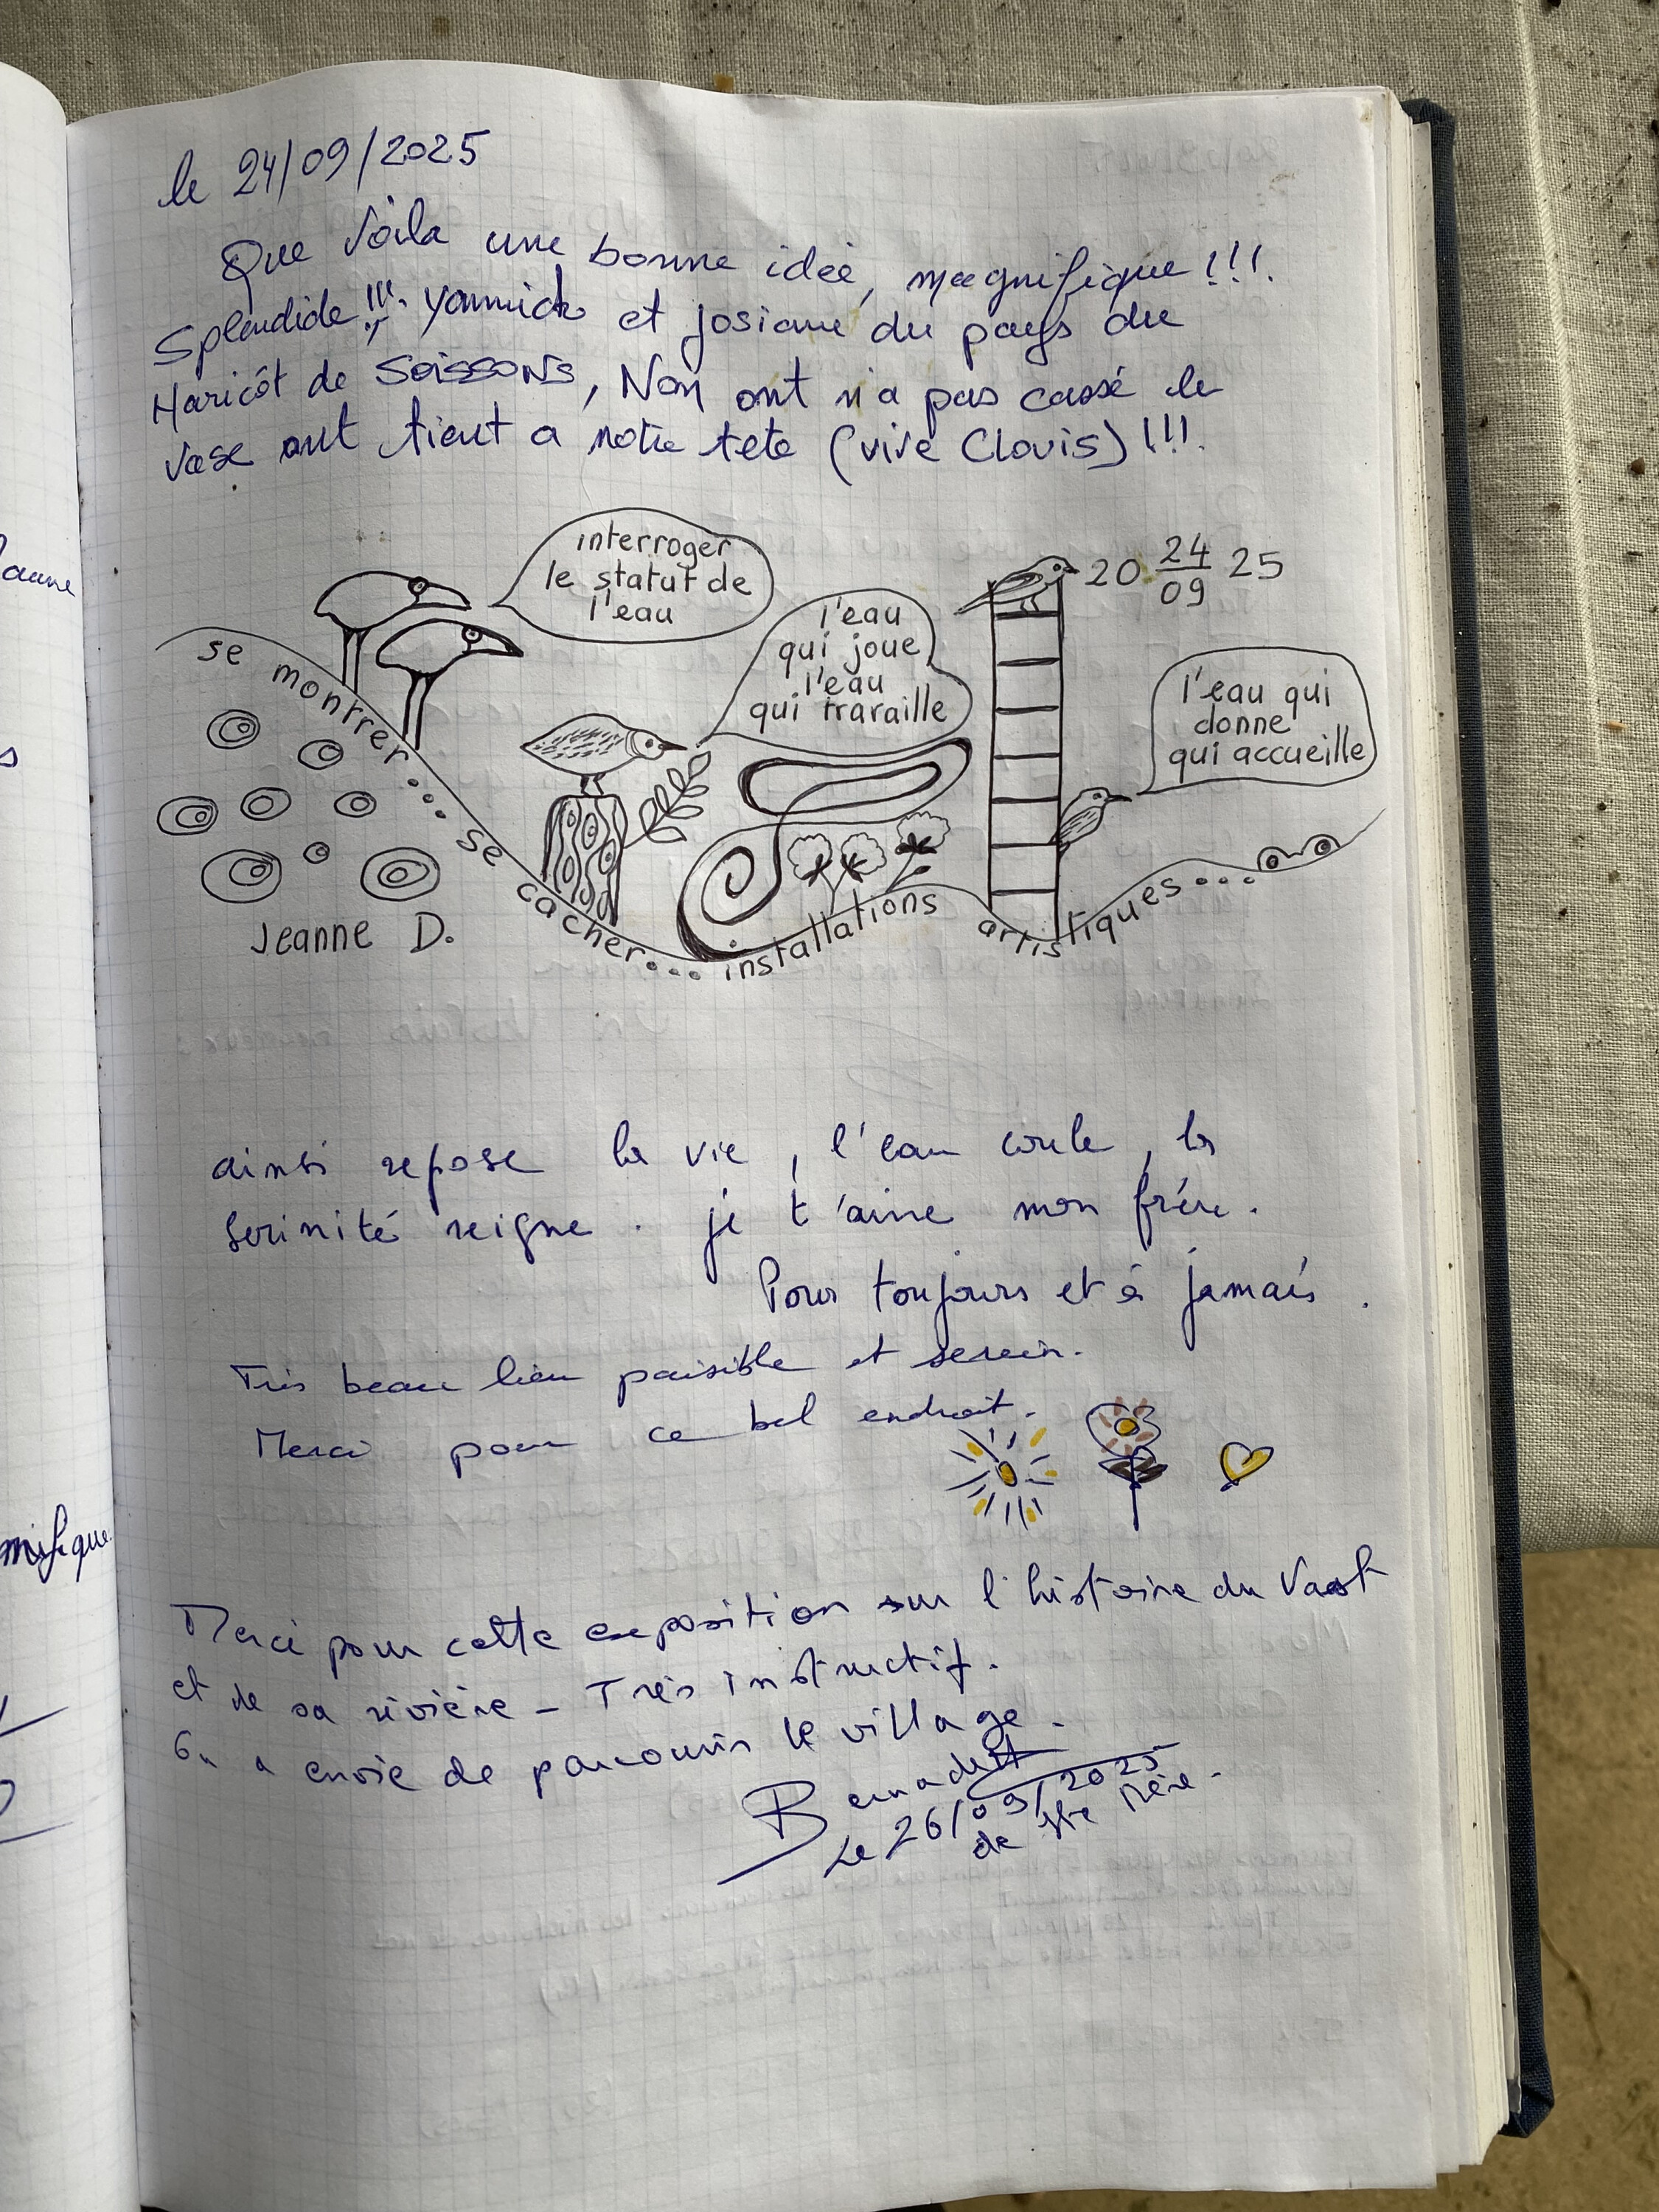 le 24/09/2025
Que Voila une bonne idée, magnifique !!!.
Splendide !!!. Yannick et josiane du pays du
Haricôt de SOISSONS, Non ont n'a pas cassé le
Vase ont tient a notre tete (vive Clovis) !!!.
interroger
le statut de
l'eau
l'eau
qui joue
l'eau
qui travaille
20 24/09 25
l'eau qui
donne
qui accueille
se montrer... se cacher... installations artistiques...
Jeanne D.
ainsi repose la vie, l'eau coule, la
serinité reigne. je t'aime mon frére.
Pour toujours et à jamais.
Très beau lieu paisible et serein.
Merci pour ce bel endroit.
Merci pour cette exposition sur l'histoire du Vast
et de sa rivière - Très instructif.
On a envie de parcourir le village.
Bernadette
Le 26/09/2025
de Ste Mère.
aune
s
nifique.